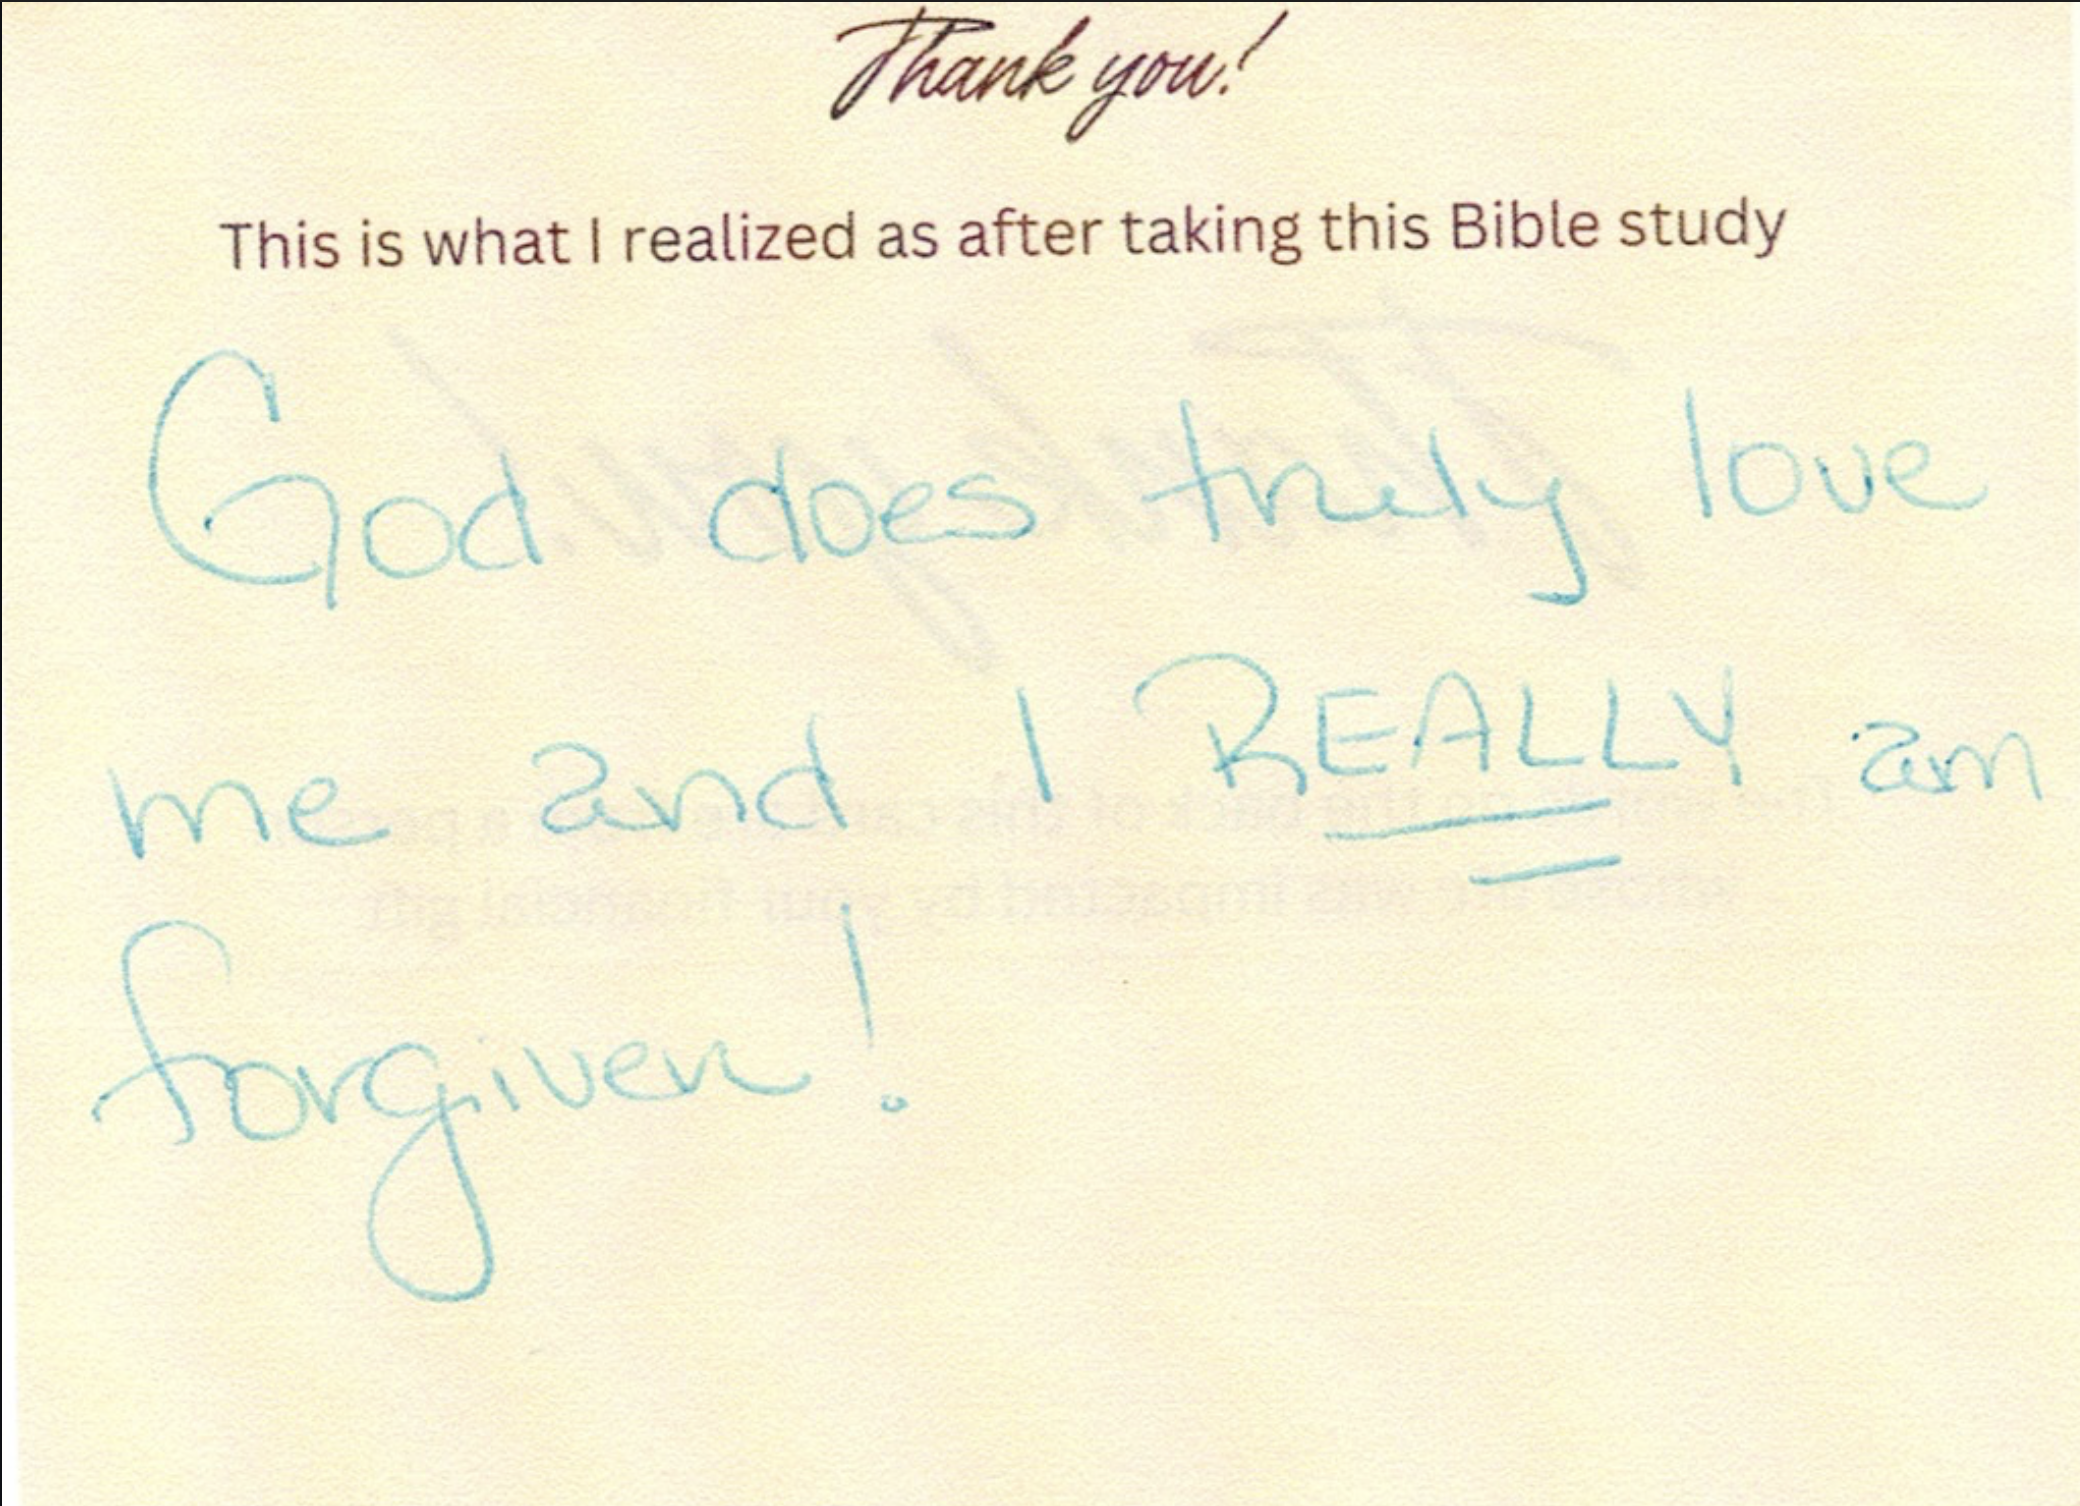 Thank you!
This is what I realized as after taking this Bible study
God does truly love
me and I REALLY am
forgiven!